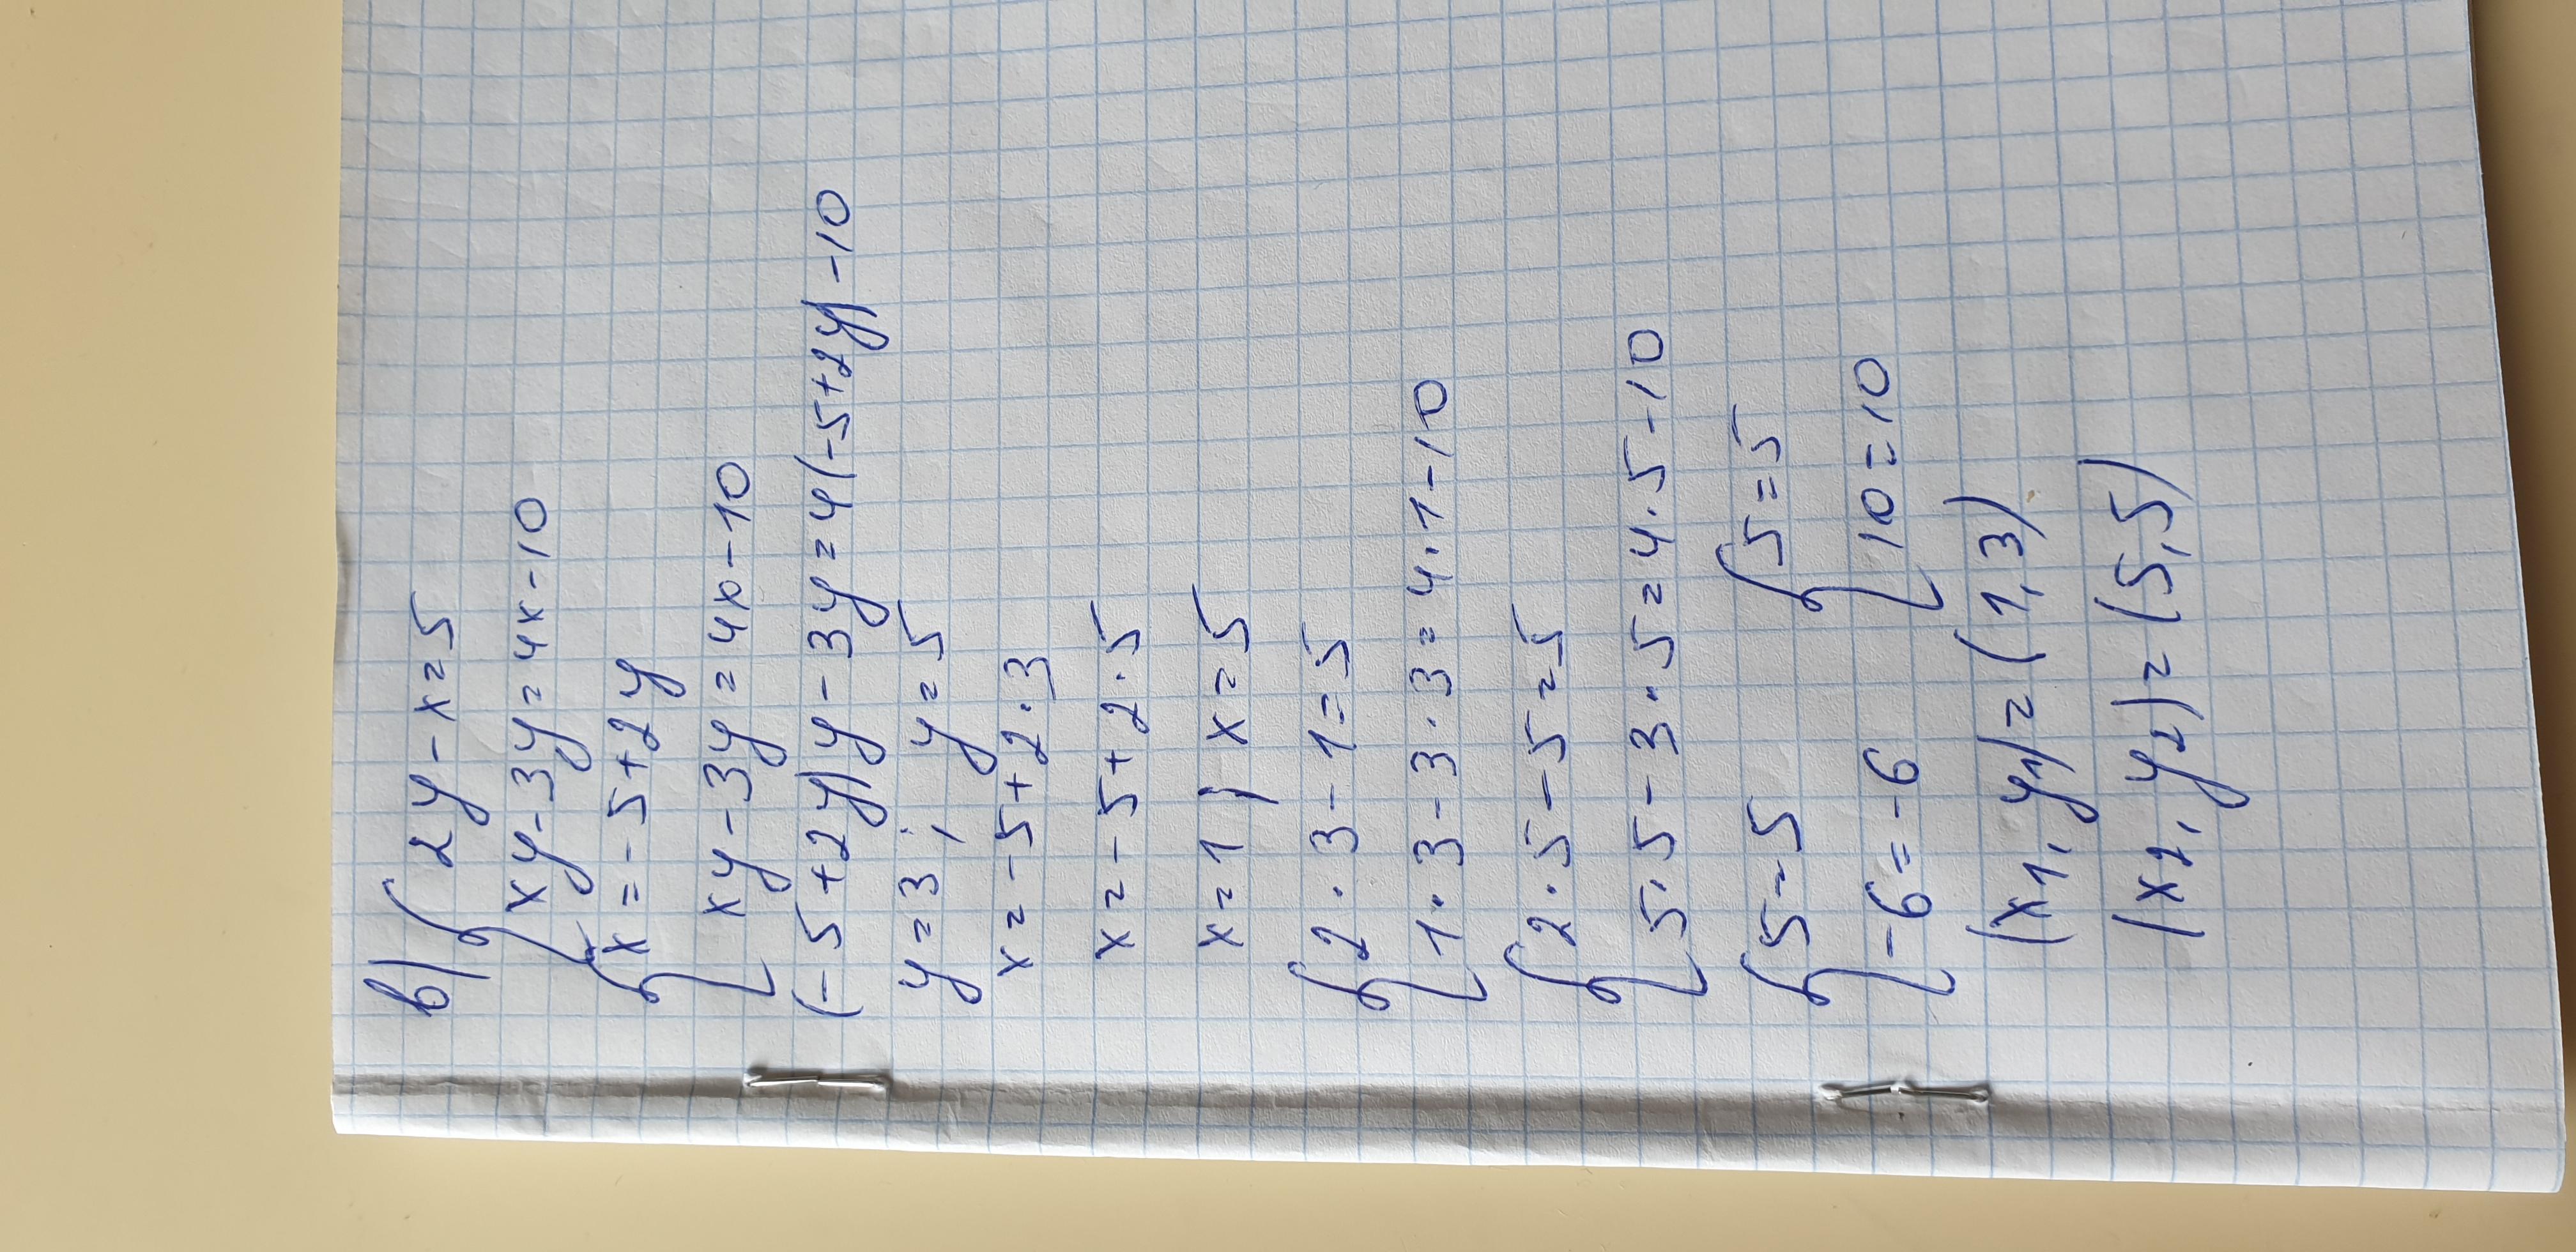 в) { 2y - x = 5
xy - 3y = 4x - 10
{ x = -5 + 2y
xy - 3y = 4x - 10
(-5 + 2y)y - 3y = 4(-5 + 2y) - 10
y = 3 ; y = 5
x = -5 + 2 · 3
x = -5 + 2 · 5
x = 1 ; x = 5
{ 2 · 3 - 1 = 5
1 · 3 - 3 · 3 = 4 · 1 - 10
{ 2 · 5 - 5 = 5
5 · 5 - 3 · 5 = 4 · 5 - 10
{ 5 = 5 { 5 = 5
-6 = -6 10 = 10
(x1, y1) = (1, 3)
(x2, y2) = (5, 5)